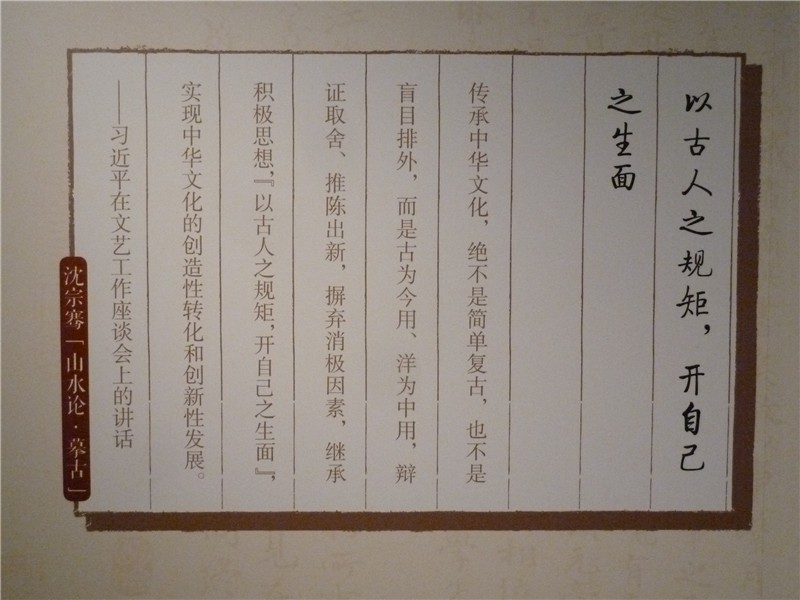 以古人之规矩，开自己
之生面
传承中华文化，绝不是简单复古，也不是
盲目排外，而是古为今用、洋为中用，辩
证取舍、推陈出新，摒弃消极因素，继承
积极思想，『以古人之规矩，开自己之生面』，
实现中华文化的创造性转化和创新性发展。
——习近平在文艺工作座谈会上的讲话
沈宗骞「山水论·摹古」